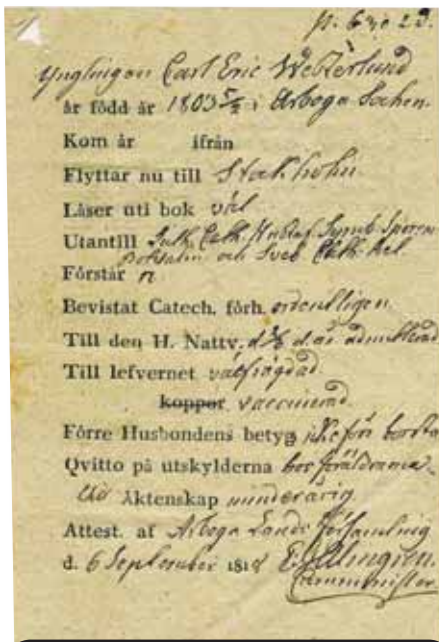 p. 6 no 23.
Ynglingen Carl Eric Westerlund
är född år 1803 5/2 i Arboga Socken.
Kom år ifrån
Flyttar nu till Stockholm
Läser uti bok väl
Utantill Luth. Cath. Hustaf. Symb.
och Sveb.
Förstår
Bevistat Catech. förh. ordentligen
Till den H. Nattv. d. d. å. admitterad
Till lefvernet välfrägdad
koppor vaccinerad
Förre Husbondens betyg icke förr borta
Qvitto på utskylderna hos föräldrarna
Äktenskap minderårig
Attest. af Arboga Lands församling
d. 6 September 1818
Comminister